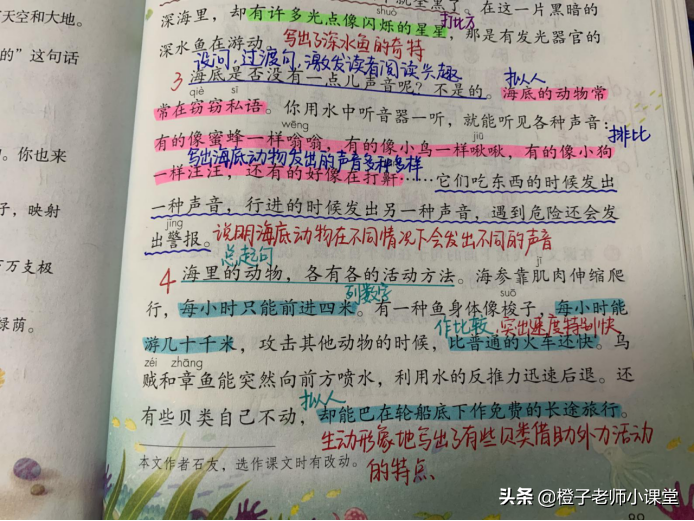 天空和大地。
的”这句话
。你也来
子，映射
万支极
绿荫。
就全黑了。在这一片黑暗的
shuò
深海里，却有许多光点像闪烁的星星，那是有发光器官的
打比方
深水鱼在游动。
写出了深水鱼的奇特
设问，过渡句，激发读者阅读兴趣
3
海底是否没有一点儿声音呢？不是的。海底的动物常
拟人
qiè sī
常在窃窃私语。你用水中听音器一听，就能听见各种声音：
wēng jiū
有的像蜜蜂一样嗡嗡，有的像小鸟一样啾啾，有的像小狗
排比
写出海底动物发出的声音多种多样
一样汪汪，还有的好像在打鼾……它们吃东西的时候发出
一种声音，行进的时候发出另一种声音，遇到危险还会发
jǐng
出警报。
说明海底动物在不同情况下会发出不同的声音
总起句
4
海里的动物，各有各的活动方法。海参靠肌肉伸缩爬
jī
列数字
suō
行，每小时只能前进四米。有一种鱼身体像梭子，每小时能
作比较，突出速度特别快
游几十千米，攻击其他动物的时候，比普通的火车还快。乌
zéi zhāng
贼和章鱼能突然向前方喷水，利用水的反推力迅速后退。还
拟人
有些贝类自己不动，却能巴在轮船底下作免费的长途旅行。
生动形象地写出了有些贝类借助外力活动
的特点、
本文作者石友，选作课文时有改动。
头条 @橙子老师小课堂